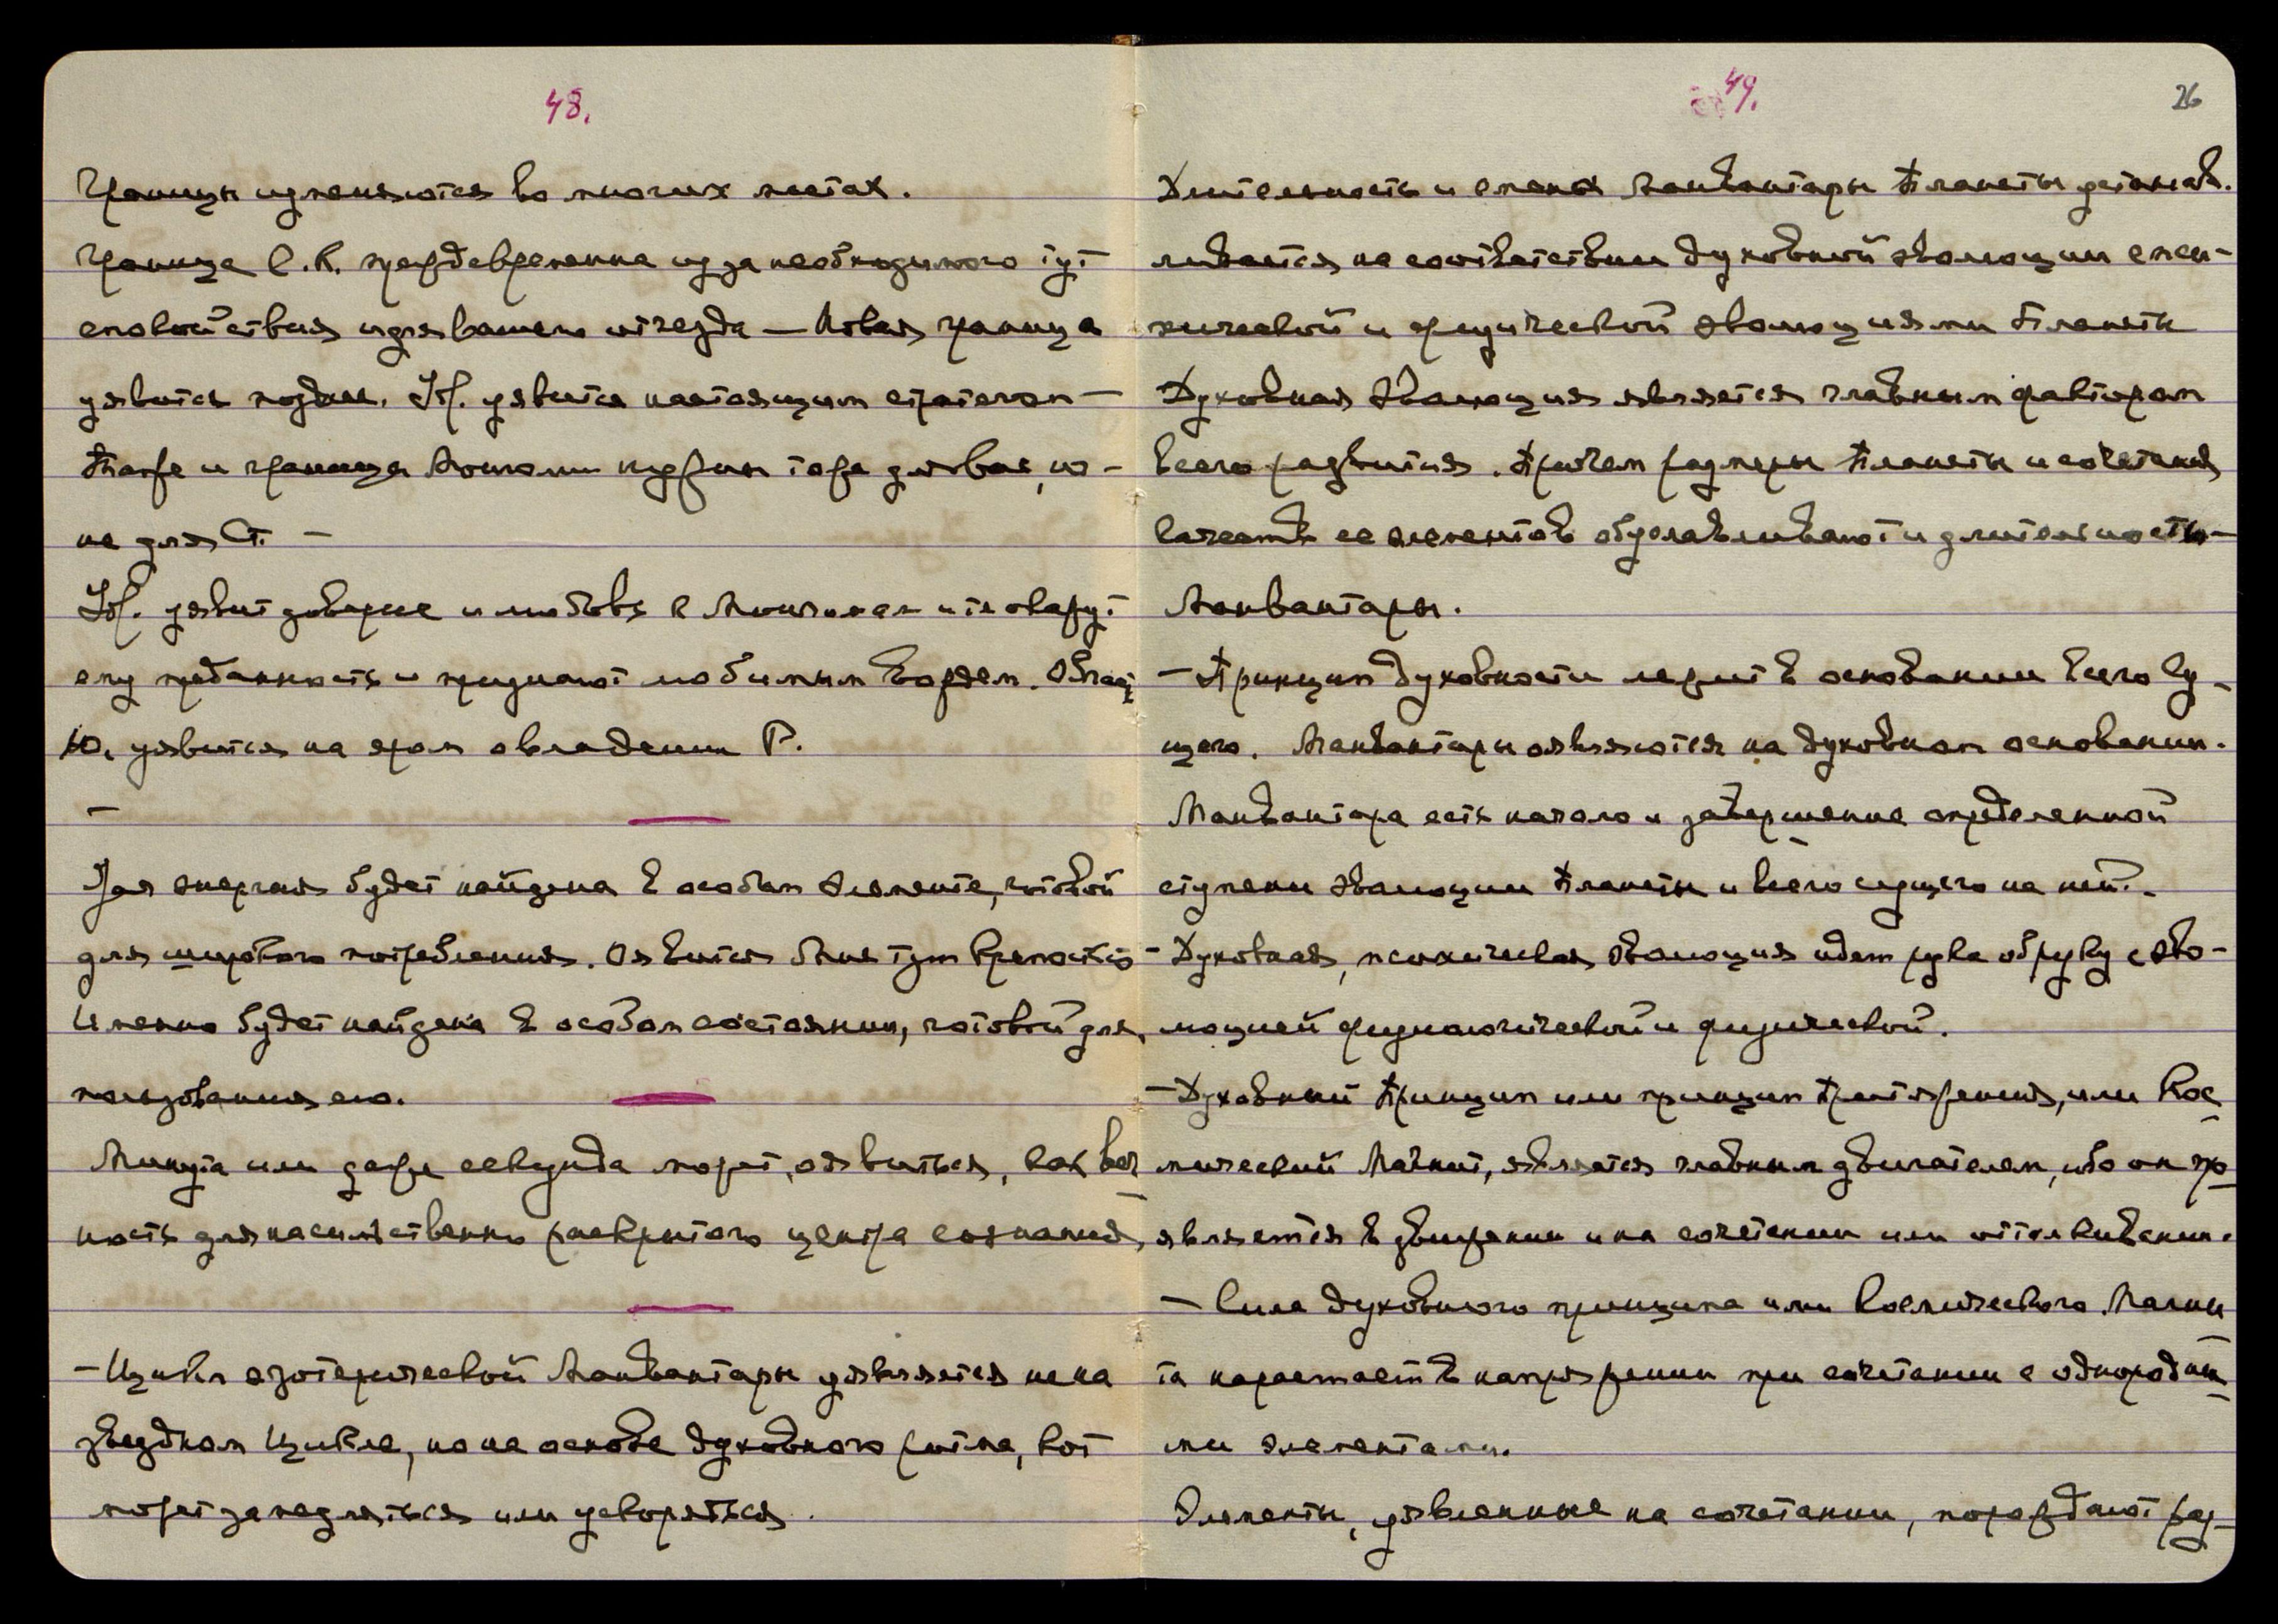 48.
Границы изменяются во многих местах.
Граница С.К. преждевременна из за необходимого тут
спокойствия и для вашего отъезда — Новая граница
уявится позднее. Юр. уявится настоящим стратегом —
Также и граница Монголии нужны тоже для вас, но —
не для Ст. —
Юр. уявит доверие и любовь к Монголам и те окажут
ему преданность и признают любимым вождем.
Ю. уявится на этом овладении Р.
—
Эта энергия будет найдена в особом элементе, готовой
для широкого потребления. Оявится Мне тут крепостью
Именно будет найдена в особом состоянии, готовой для
пользования ею.
Минута или даже секунда может оявиться, как веч
ность для насильственно раскрытого центра сознания
— Цикл эзотерической Манвантары уявляется не на
звездном Цикле, но на основе духовного ритма, кот
может замедляться или ускоряться.
49.
26
Длительность и смена Манвантары Планеты устанав.
ливается на соответствии духовной эволюции с пси-
хической и физической эволюциями Планеты
Духовная Эволюция является главным фактором
всего развития. Причем размеры Планеты и сочетания
качеств ее элементов обуславливают и длительность —
Манвантары.
— Принцип духовности лежит в основании всего Су-
щего. Манвантары оявляются на духовном основании.
Манвантара есть начало и завершение определенной
ступени эволюции Планеты и всего сущего на ней. -
- Духовная, психическая эволюция идет рука об руку с эво-
люцией физиологической и физической.
— Духовный Принцип или принцип Притяжения, или Кос
мический Магнит, является главным двигателем, ибо он про
является в движении и на сочетании или отталкивании.
— Сила духовного принципа или Космического Магни
та нарастает в напряжении при сочетании с однородны
ми элементами.
Элементы, уявленные на сочетании, порождают раз-